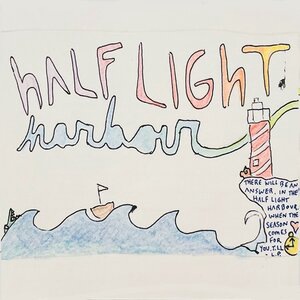 HALF LIGHT
harbour
THERE WILL BE AN
ANSWER, IN THE
HALF LIGHT
HARBOUR
WHEN THE
SEASON
COMES
FOR
YOU, TILL
- L.P.